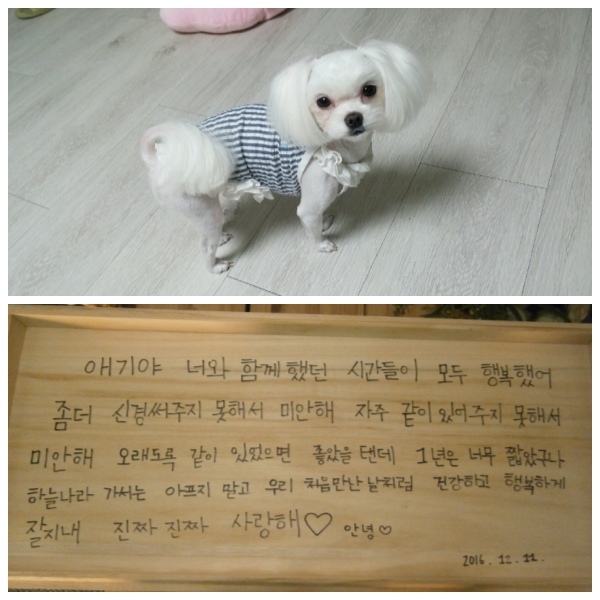 애기야 너와 함께 했던 시간들이 모두 행복했어
좀더 신경써주지 못해서 미안해 자주 같이 있어주지 못해서
미안해 오래도록 같이 있었으면 좋았을 텐데 1년은 너무 짧았구나
하늘나라 가서는 아프지 말고 우리 처음만난 날처럼 건강하고 행복하게
잘지내 진짜 진짜 사랑해♡ 안녕♡
2016. 12. 11.